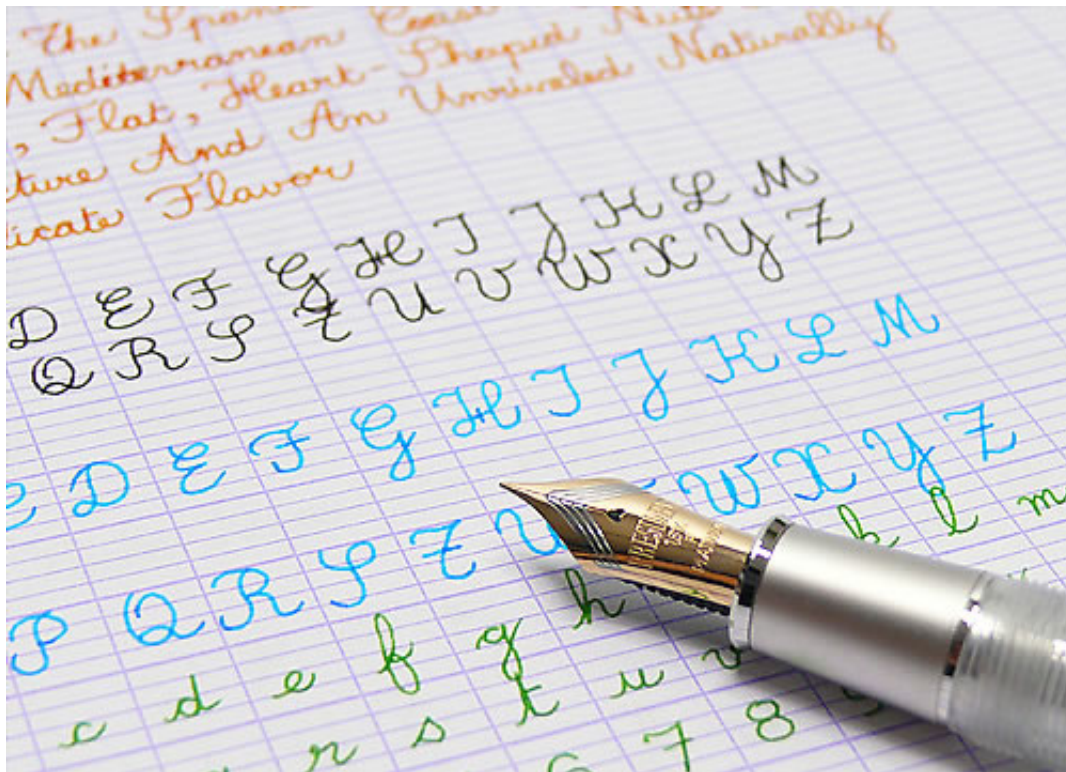 The Spani
Mediterranean Coast
, Flat, Heart-Shaped Nuts
ture And An Unrivaled Naturally
licate Flavor
D E F G H I J K L M
Q R S T U V W X Y Z
C D E F G H I J K L M
P Q R S T U W X Y Z
c d e f g h k l m
r s t u v
6 7 8 9